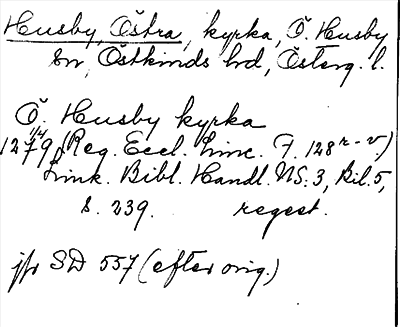 Husby, Östra, kyrka, Ö. Husby
sn, Östkinds hd, Österg. l.
Ö. Husby kyrka
1279 1/4 (Reg. Eccl. Linc. F. 128 r-v.)
Link. Bibl. Handl. NS. 3, Bil. 5,
s. 239. regest.
jfr SD 557 (efter orig.)